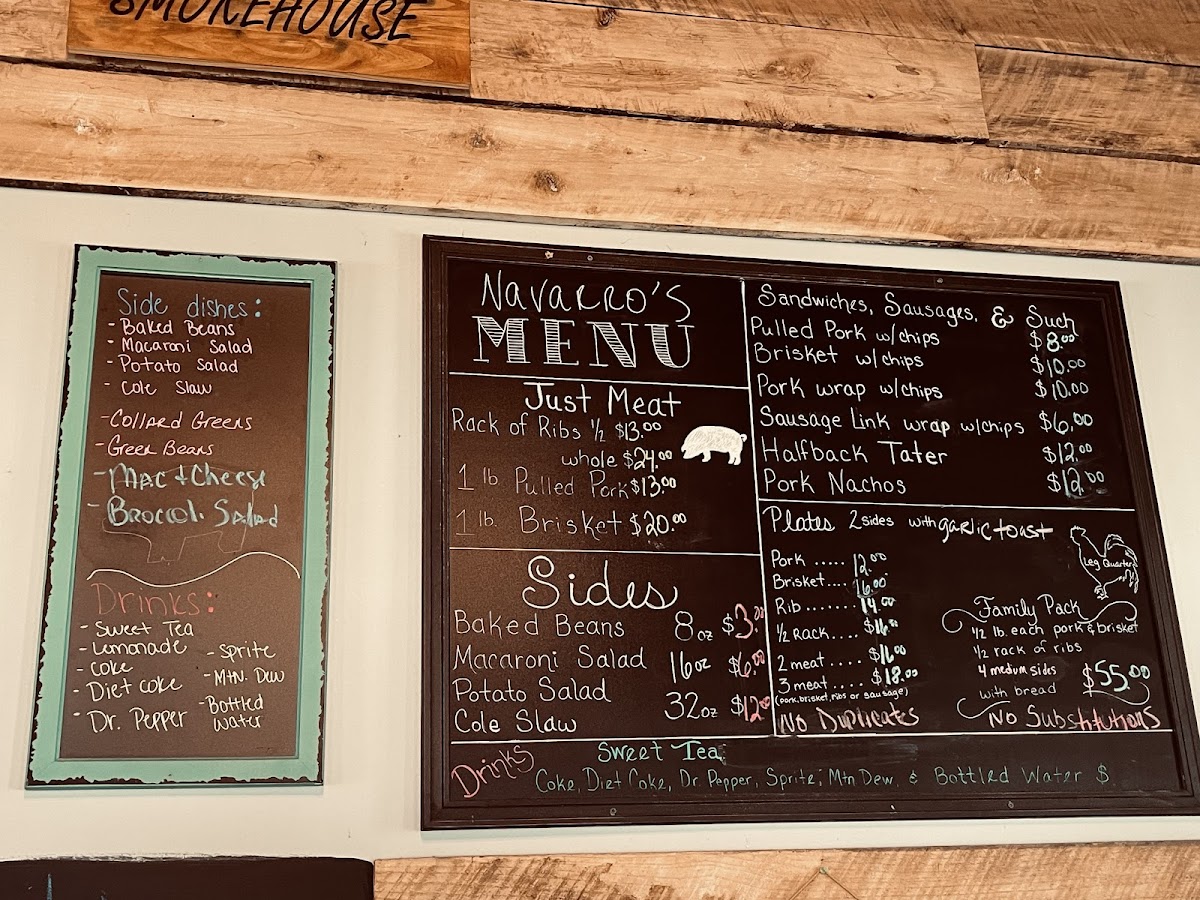 SMOKEHOUSE
Side dishes:
- Baked Beans
- Macaroni Salad
- Potato Salad
- Cole Slaw
- Collard Greens
- Green Beans
- Mac + Cheese
- Broccoli Salad
Drinks:
- Sweet Tea
- Lemonade
- Coke
- Diet Coke
- Dr. Pepper
- Sprite
- Mtn. Dew
- Bottled
Water
Navarro's
MENU
Just Meat
Rack of Ribs 1/2 $13.00
whole $24.00
1 lb Pulled Pork $13.00
1 lb. Brisket $20.00
Sides
Baked Beans 8oz $3.00
Macaroni Salad 16oz $6.00
Potato Salad 32oz $12.00
Cole Slaw
Sandwiches, Sausages, & Such
Pulled Pork w/chips $8.00
Brisket w/chips $10.00
Pork wrap w/chips $10.00
Sausage Link wrap w/chips $6.00
Halfback Tater $12.00
Pork Nachos $12.00
Plates 2 sides with garlic toast
Pork ..... 12.00
Brisket.... 16.00
Rib ....... 14.00
1/2 Rack.... $16.00
2 meat .... $16.00
3 meat .... $18.00
(pork, brisket, ribs or sausage)
No Duplicates
Leg Quarter
Family Pack
1/2 lb. each pork & brisket
1/2 rack of ribs
4 medium sides
with bread $55.00
No Substitutions
Drinks
Sweet Tea,
Coke, Diet Coke, Dr. Pepper, Sprite, Mtn Dew. & Bottled Water $